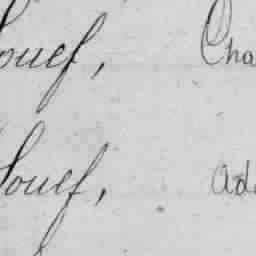 Souef, Cha
Souef, Ada